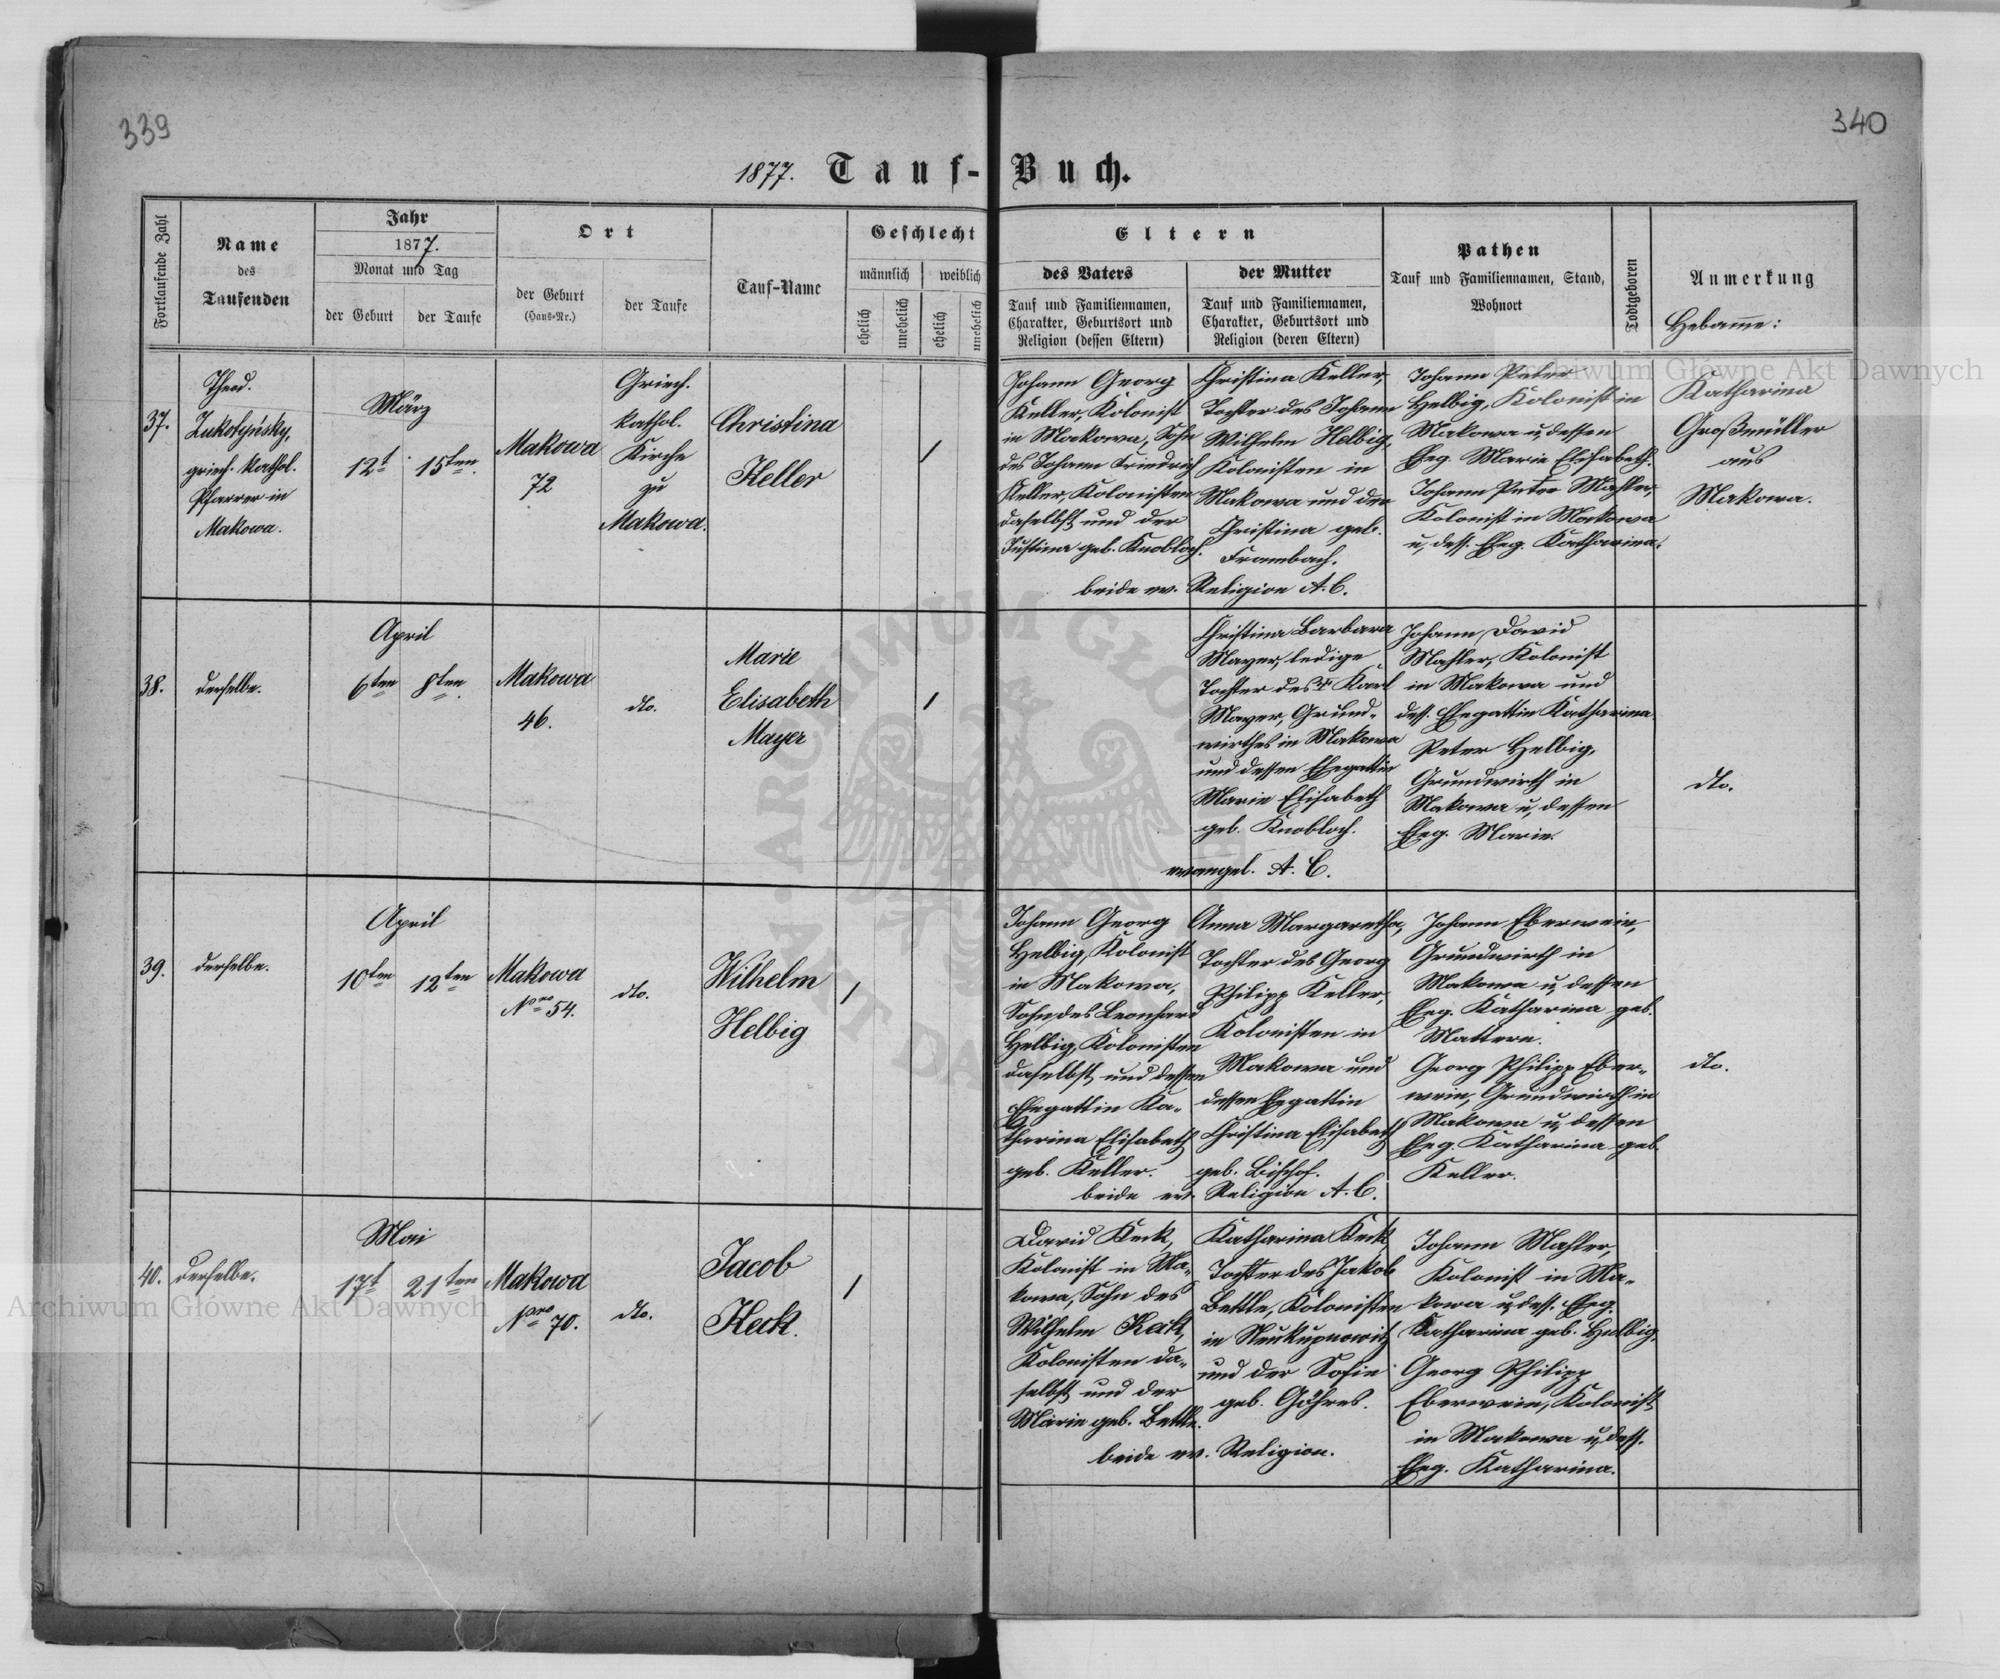 339
340
1877. Tauf-Buch.
Fortlaufende Zahl
Name
des
Taufenden
Jahr
1877.
Monat und Tag
der Geburt
der Taufe
Ort
der Geburt
(Haus-Nr.)
der Taufe
Tauf-Name
Geschlecht
männlich
weiblich
ehelich
unehelich
ehelich
unehelich
Eltern
des Vaters
Tauf und Familiennamen,
Charakter, Geburtsort und
Religion (dessen Eltern)
der Mutter
Tauf und Familiennamen,
Charakter, Geburtsort und
Religion (deren Eltern)
Pathen
Tauf und Familiennamen, Stand,
Wohnort
Todtgeboren
Anmerkung
Hebame:
37.
Theod.
Zukotyńsky,
griech. kathol.
Pfarrer in
Makowa.
März
12t
15ten
Makowa
72
Griech.
kathol.
Kirche
zu
Makowa.
Christina
Keller
/
Johann Georg
Keller, Kolonist
in Makowa, Sohn
des Johann Friedrich
Keller, Kolonisten
daselbst und der
Justina geb. Knobloch.
Christina Keller,
Tochter des Johann
Wilhelm Helbig,
Kolonisten in
Makowa und der
Christina geb.
Frambach.
beide ev. Religion A. C.
Johann Peter
Helbig, Kolonist in
Makowa u. dessen
Eheg. Marie Elisabeth.
Johann Peter Mahler,
Kolonist in Makowa
u. dess. Eheg. Katharina.
Katharina
Großmüller
aus
Makowa.
38.
derselbe.
April
6ten
8ten
Makowa
46.
dto.
Marie
Elisabeth
Mayer
/
Christina Barbara
Mayer, ledige
Tochter des † Karl
Mayer, Grund-
wirthes in Makowa
und dessen Ehegattin
Marie Elisabeth
geb. Knobloch.
evangel. A. C.
Johann David
Mahler, Kolonist
in Makowa und
dess. Ehegattin Katharina.
Peter Helbig,
Grundwirth in
Makowa u. dessen
Eheg. Marie.
dto.
39.
derselbe.
April
10ten
12ten
Makowa
Nro 54.
dto.
Wilhelm
Helbig
/
Johann Georg
Helbig, Kolonist
in Makowa,
Sohn des Leonhard
Helbig, Kolonisten
daselbst und dessen
Ehegattin Ka-
tharina Elisabeth
geb. Keller.
Anna Margaretha,
Tochter des Georg
Philipp Keller,
Kolonisten in
Makowa und
dessen Ehegattin
Christina Elisabeth
geb. Bischof.
beide ev. Religion A. C.
Johann Eberwein,
Grundwirth in
Makowa u. dessen
Eheg. Katharina geb.
Mattern.
Georg Philipp Eber-
wein, Grundwirth in
Makowa u. dessen
Eheg. Katharina geb.
Keller.
dto.
40.
derselbe.
Mai
17t
21ten
Makowa
Nro 70.
dto.
Jacob
Keck.
/
David Keck,
Kolonist in Ma-
kowa, Sohn des
Wilhelm Keck,
Kolonisten da-
selbst und der
Marie geb. Bettle.
Katharina Keck
Tochter des Jakob
Bettle, Kolonisten
in Neukupnowitz
und der Sofie
geb. Göhres.
beide ev. Religion.
Johann Mahler,
Kolonist in Ma-
kowa u. dess. Eheg.
Katharina geb. Helbig.
Georg Philipp
Eberwein, Kolonist
in Makowa u. dess.
Eheg. Katharina.
Archiwum Główne Akt Dawnych
Archiwum Główne Akt Dawnych